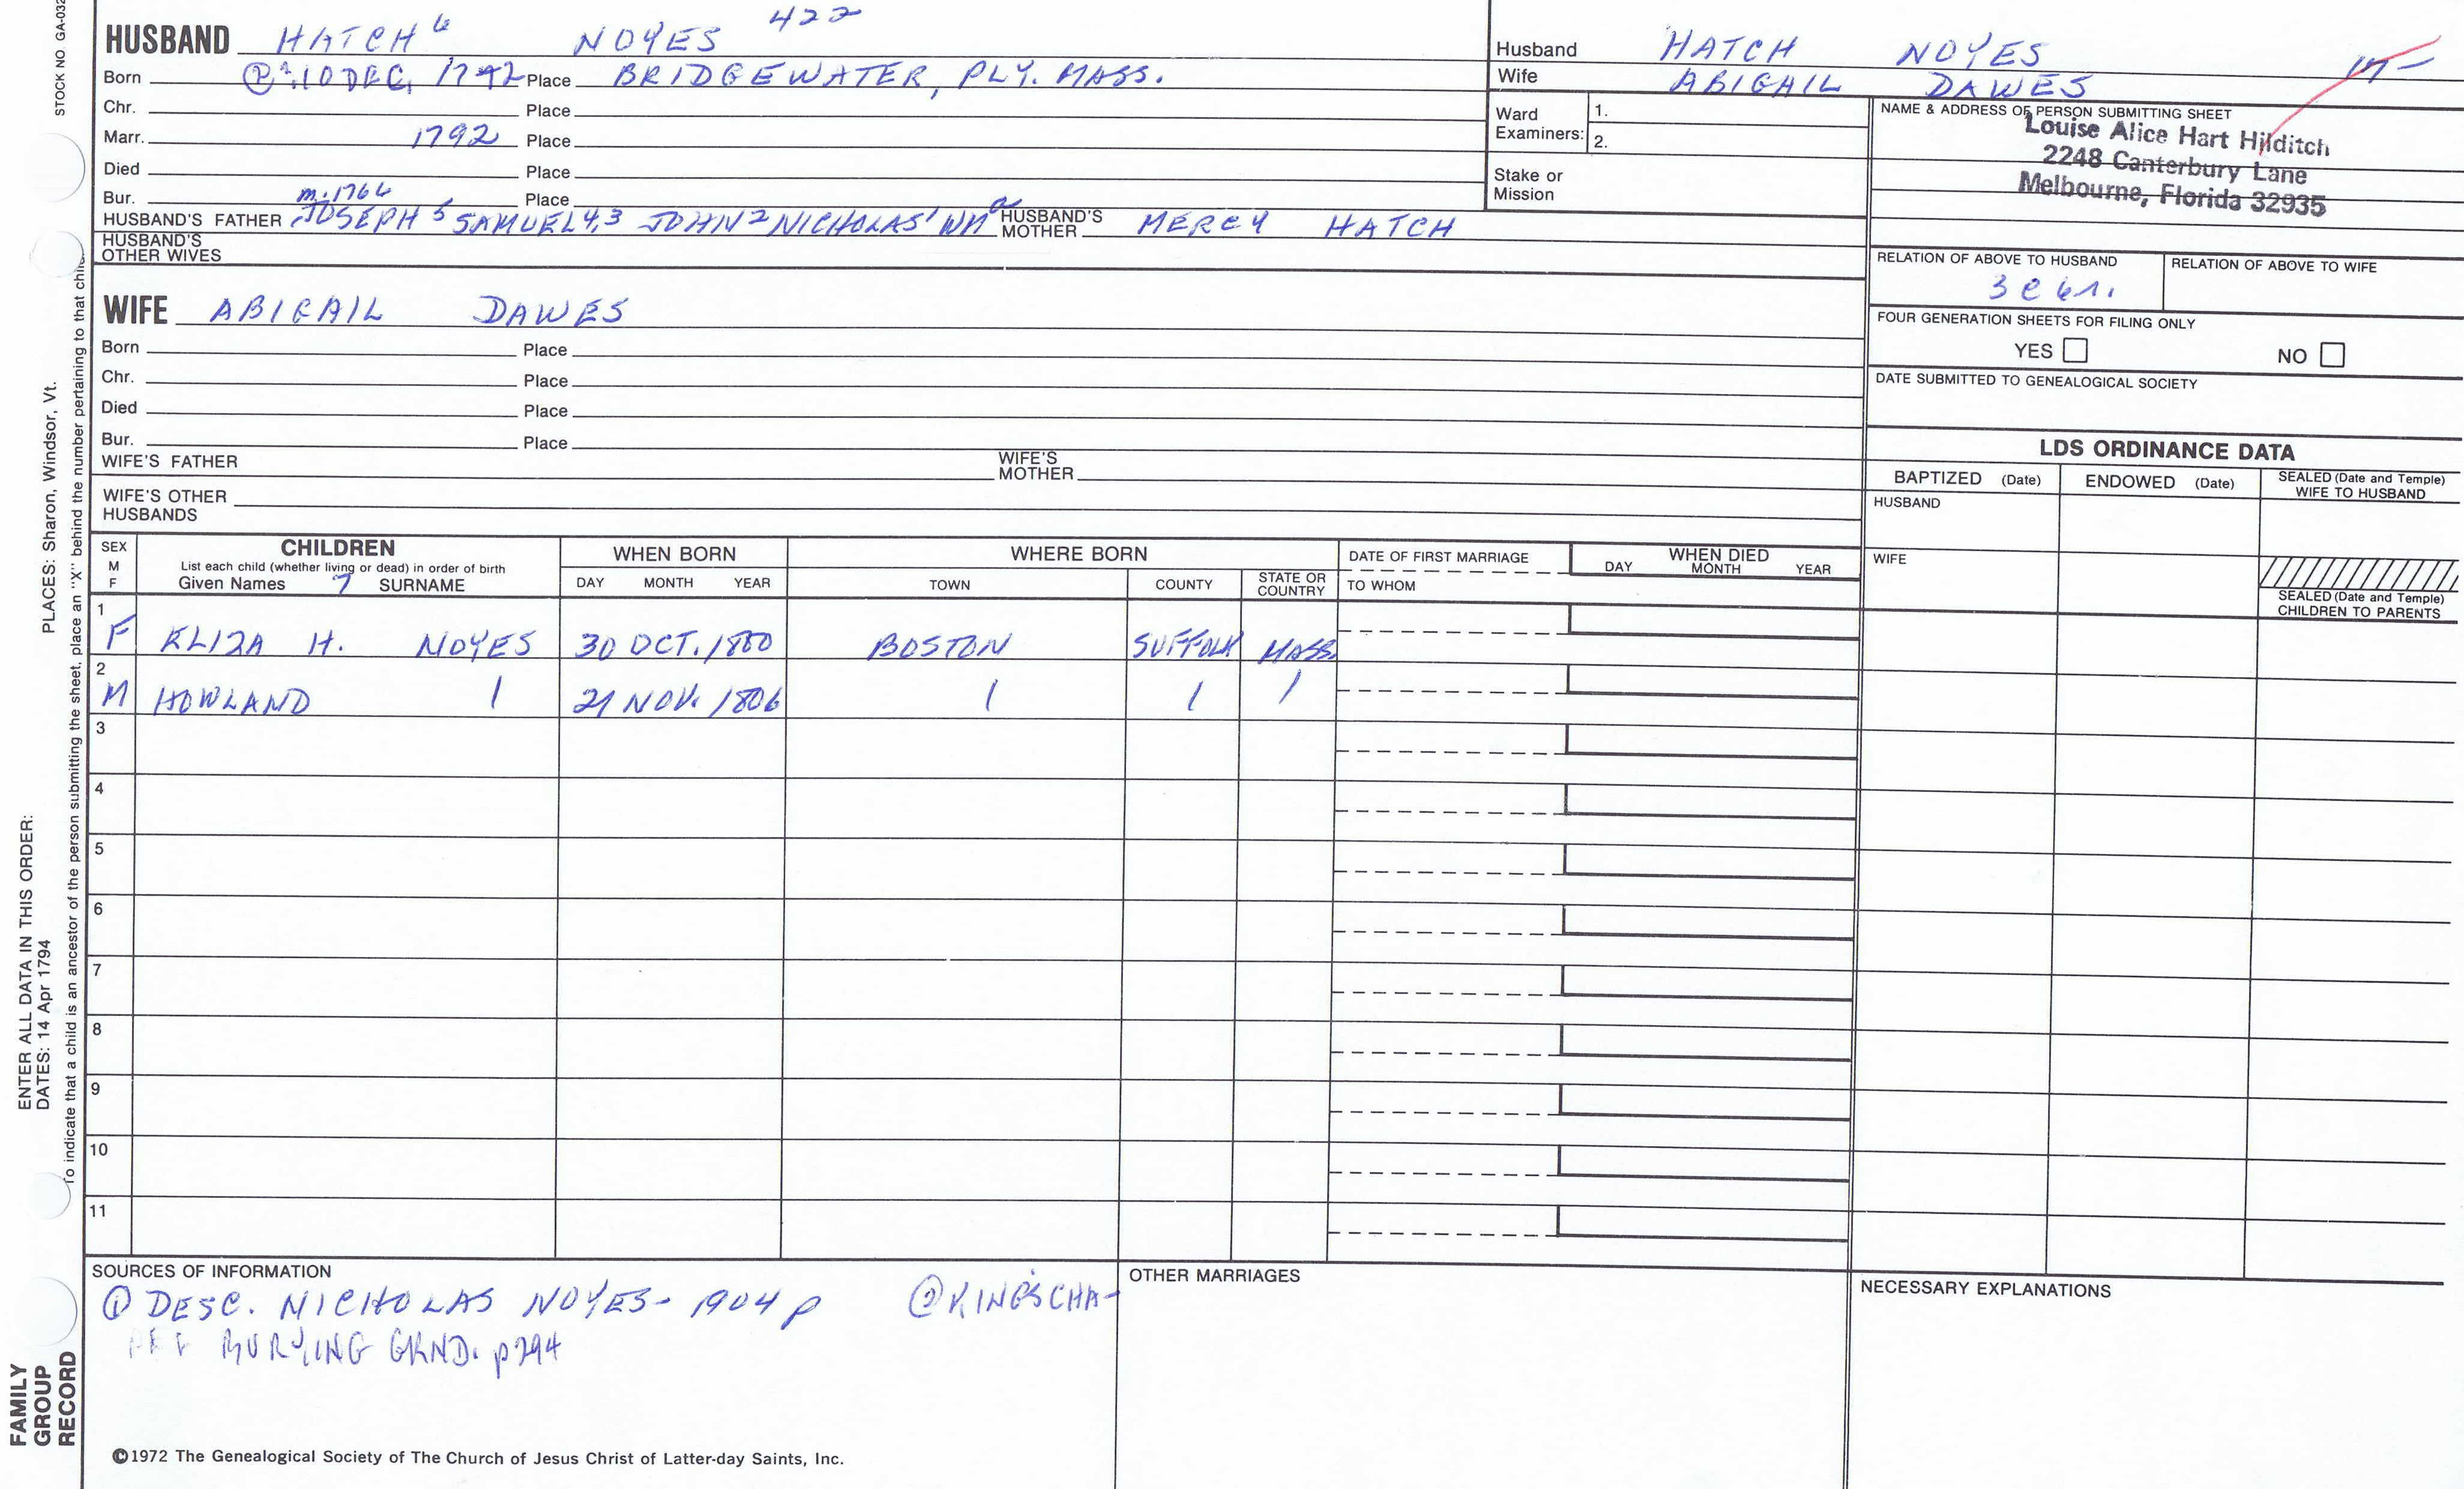 STOCK NO. GA-032
422
HUSBAND HATCH 6 NOYES
Born 10 DEC. Place BRIDGEWATER, PLY. MASS.
Chr. Place
Marr. 1792 Place
Died Place
Bur. Place
m. 1766
HUSBAND'S FATHER JOSEPH 5 SAMUEL 4,3 JOHN 2 NICHOLAS 1 WM a HUSBAND'S MOTHER MERCY HATCH
HUSBAND'S OTHER WIVES
WIFE ABIGAIL DAWES
Born Place
Chr. Place
Died Place
Bur. Place
WIFE'S FATHER WIFE'S MOTHER
WIFE'S OTHER HUSBANDS
Husband HATCH NOYES
Wife ABIGAIL DAWES
Ward Examiners: 1.
2.
Stake or Mission
NAME & ADDRESS OF PERSON SUBMITTING SHEET
Louise Alice Hart Hilditch
2248 Canterbury Lane
Melbourne, Florida 32935
RELATION OF ABOVE TO HUSBAND RELATION OF ABOVE TO WIFE
FOUR GENERATION SHEETS FOR FILING ONLY
YES NO
DATE SUBMITTED TO GENEALOGICAL SOCIETY
LDS ORDINANCE DATA
BAPTIZED (Date) ENDOWED (Date) SEALED (Date and Temple) WIFE TO HUSBAND
HUSBAND
WIFE
SEALED (Date and Temple) CHILDREN TO PARENTS
SEX M F
CHILDREN
List each child (whether living or dead) in order of birth
Given Names 7 SURNAME
WHEN BORN
DAY MONTH YEAR
WHERE BORN
TOWN COUNTY STATE OR COUNTRY
DATE OF FIRST MARRIAGE
TO WHOM
WHEN DIED
DAY MONTH YEAR
1
F ELIZA H. NOYES 30 OCT. 1800 BOSTON SUFFOLK MASS.
2
M HOWLAND 1 21 NOV. 1806 1 1 1
3
4
5
6
7
8
9
10
11
SOURCES OF INFORMATION
① DESC. NICHOLAS NOYES - 1904 p ② KING'S CHA-
PEL BURYING GRND. p294
OTHER MARRIAGES
NECESSARY EXPLANATIONS
©1972 The Genealogical Society of The Church of Jesus Christ of Latter-day Saints, Inc.
FAMILY
GROUP
RECORD
ENTER ALL DATA IN THIS ORDER:
DATES: 14 Apr 1794
PLACES: Sharon, Windsor, Vt.
To indicate that a child is an ancestor of the person submitting the sheet, place an "X" behind the number pertaining to that child.